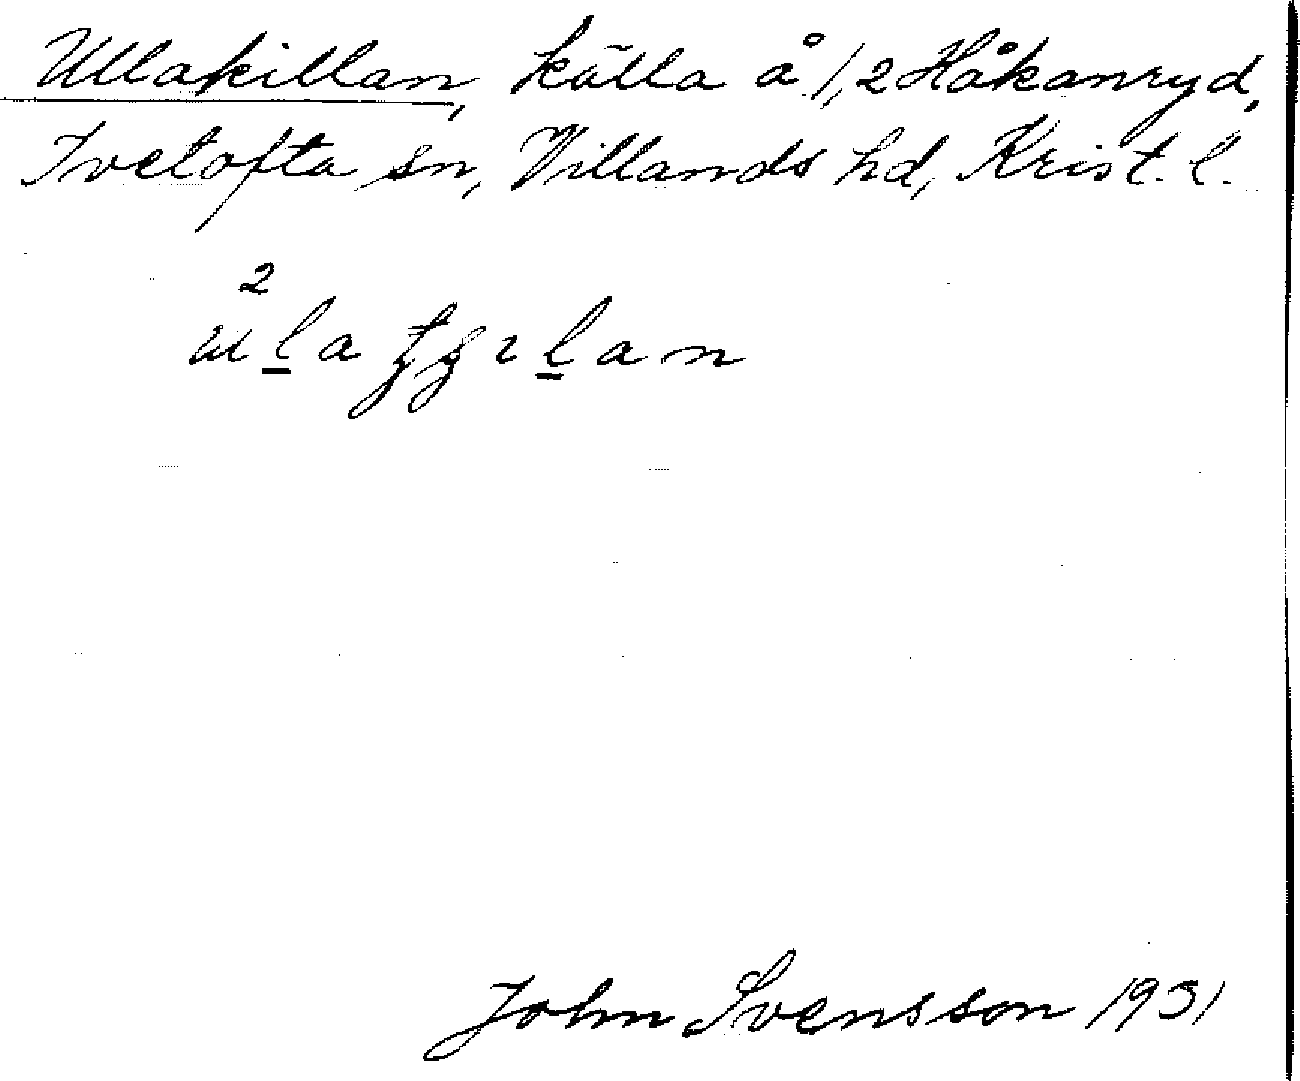 Ullakillan, källa å 1,2 Håkanryd,
Ivetofta sn, Villands hd, Krist. l.
2
John Svensson 1931